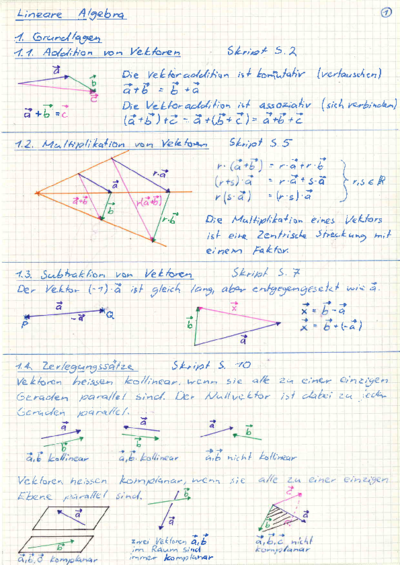 Lineare Algebra
1
1. Grundlagen
1.1. Addition von Vektoren Skript S. 2
a b c
Die Vektoraddition ist komutativ (vertauschen)
a + b = b + a
Die Vektoraddition ist assoziativ (sich verbinden)
a + b = c
(a + b) + c = a + (b + c) = a + b + c
1.2. Multiplikation von Vektoren Skript S. 5
a r·a a+b r(a+b) b r·b
r · (a + b) = r·a + r·b
(r+s)·a = r·a + s·a
r·(s·a) = (r·s)·a
r,s ∈ ℝ
Die Multiplikation eines Vektors
ist eine Zentrische Streckung mit
einem Faktor.
1.3. Subtraktion von Vektoren Skript S. 7
Der Vektor (-1)·a ist gleich lang, aber entgegengesetzt wie a.
P a -a Q
x b a
x = b - a
x = b + (-a)
1.4. Zerlegungssätze Skript S. 10
Vektoren heissen kollinear, wenn sie alle zu einer einzigen
Geraden parallel sind. Der Nullvektor ist dabei zu jeder
Geraden parallel.
a b a b a b
a,b kollinear a,b kollinear a,b nicht kollinear
Vektoren heissen komplanar, wenn sie alle zu einer einzigen
Ebene parallel sind.
a b a b c a b
a,b,c komplanar
zwei Vektoren a,b
im Raum sind
immer komplanar
a,b,c nicht
komplanar